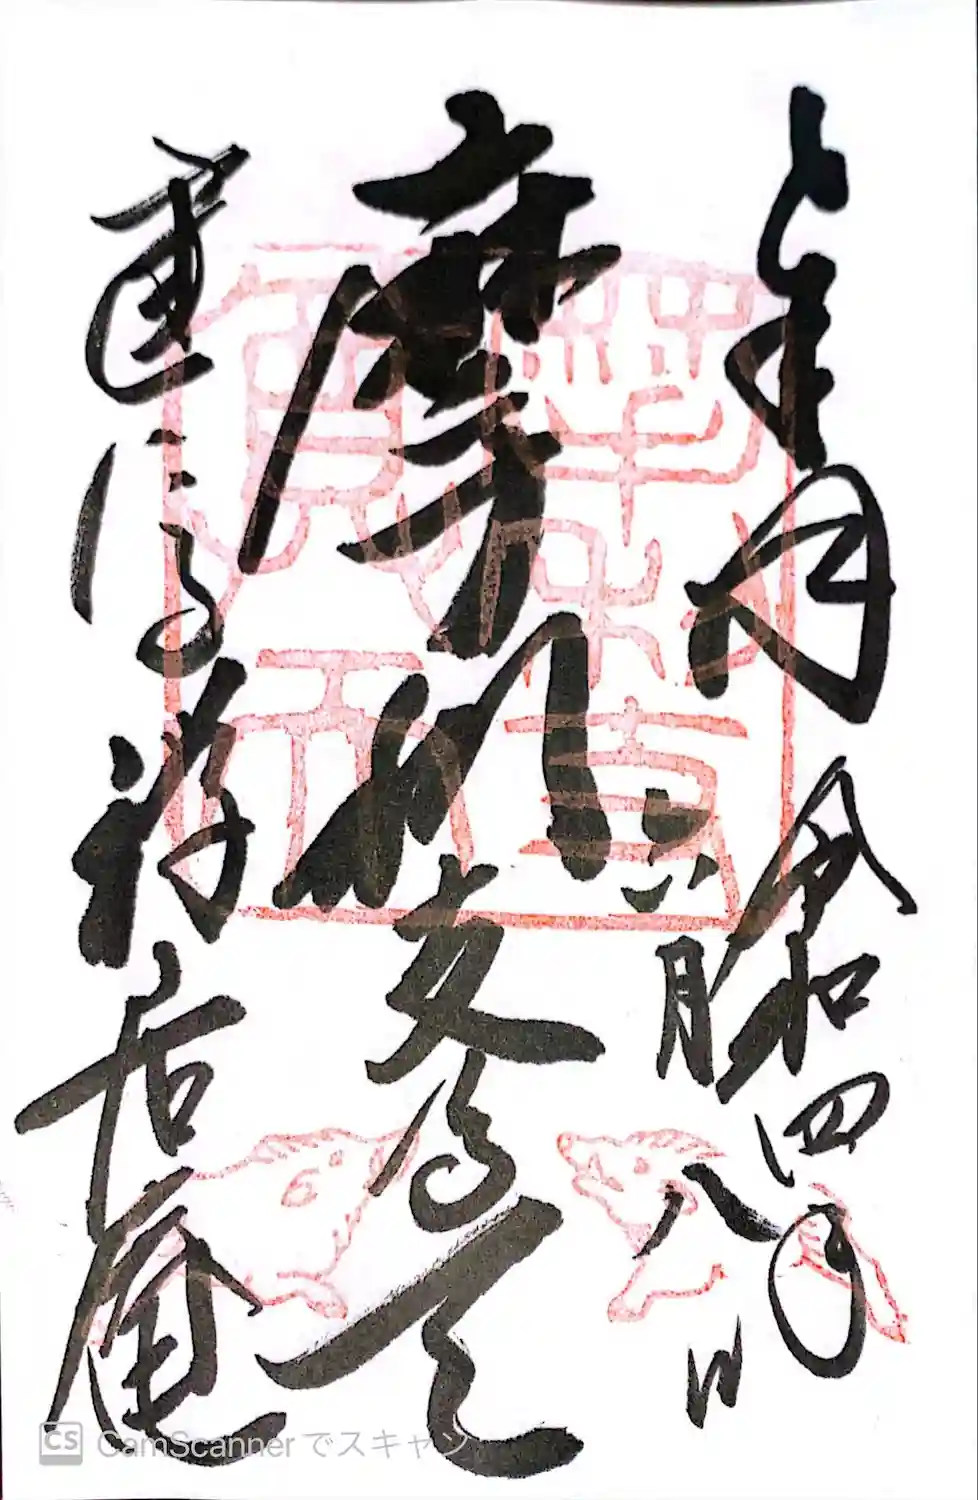 奉拝 令和四年
六月八日
摩利支尊天
建仁寺禅居庵
CS CamScanner でスキャン